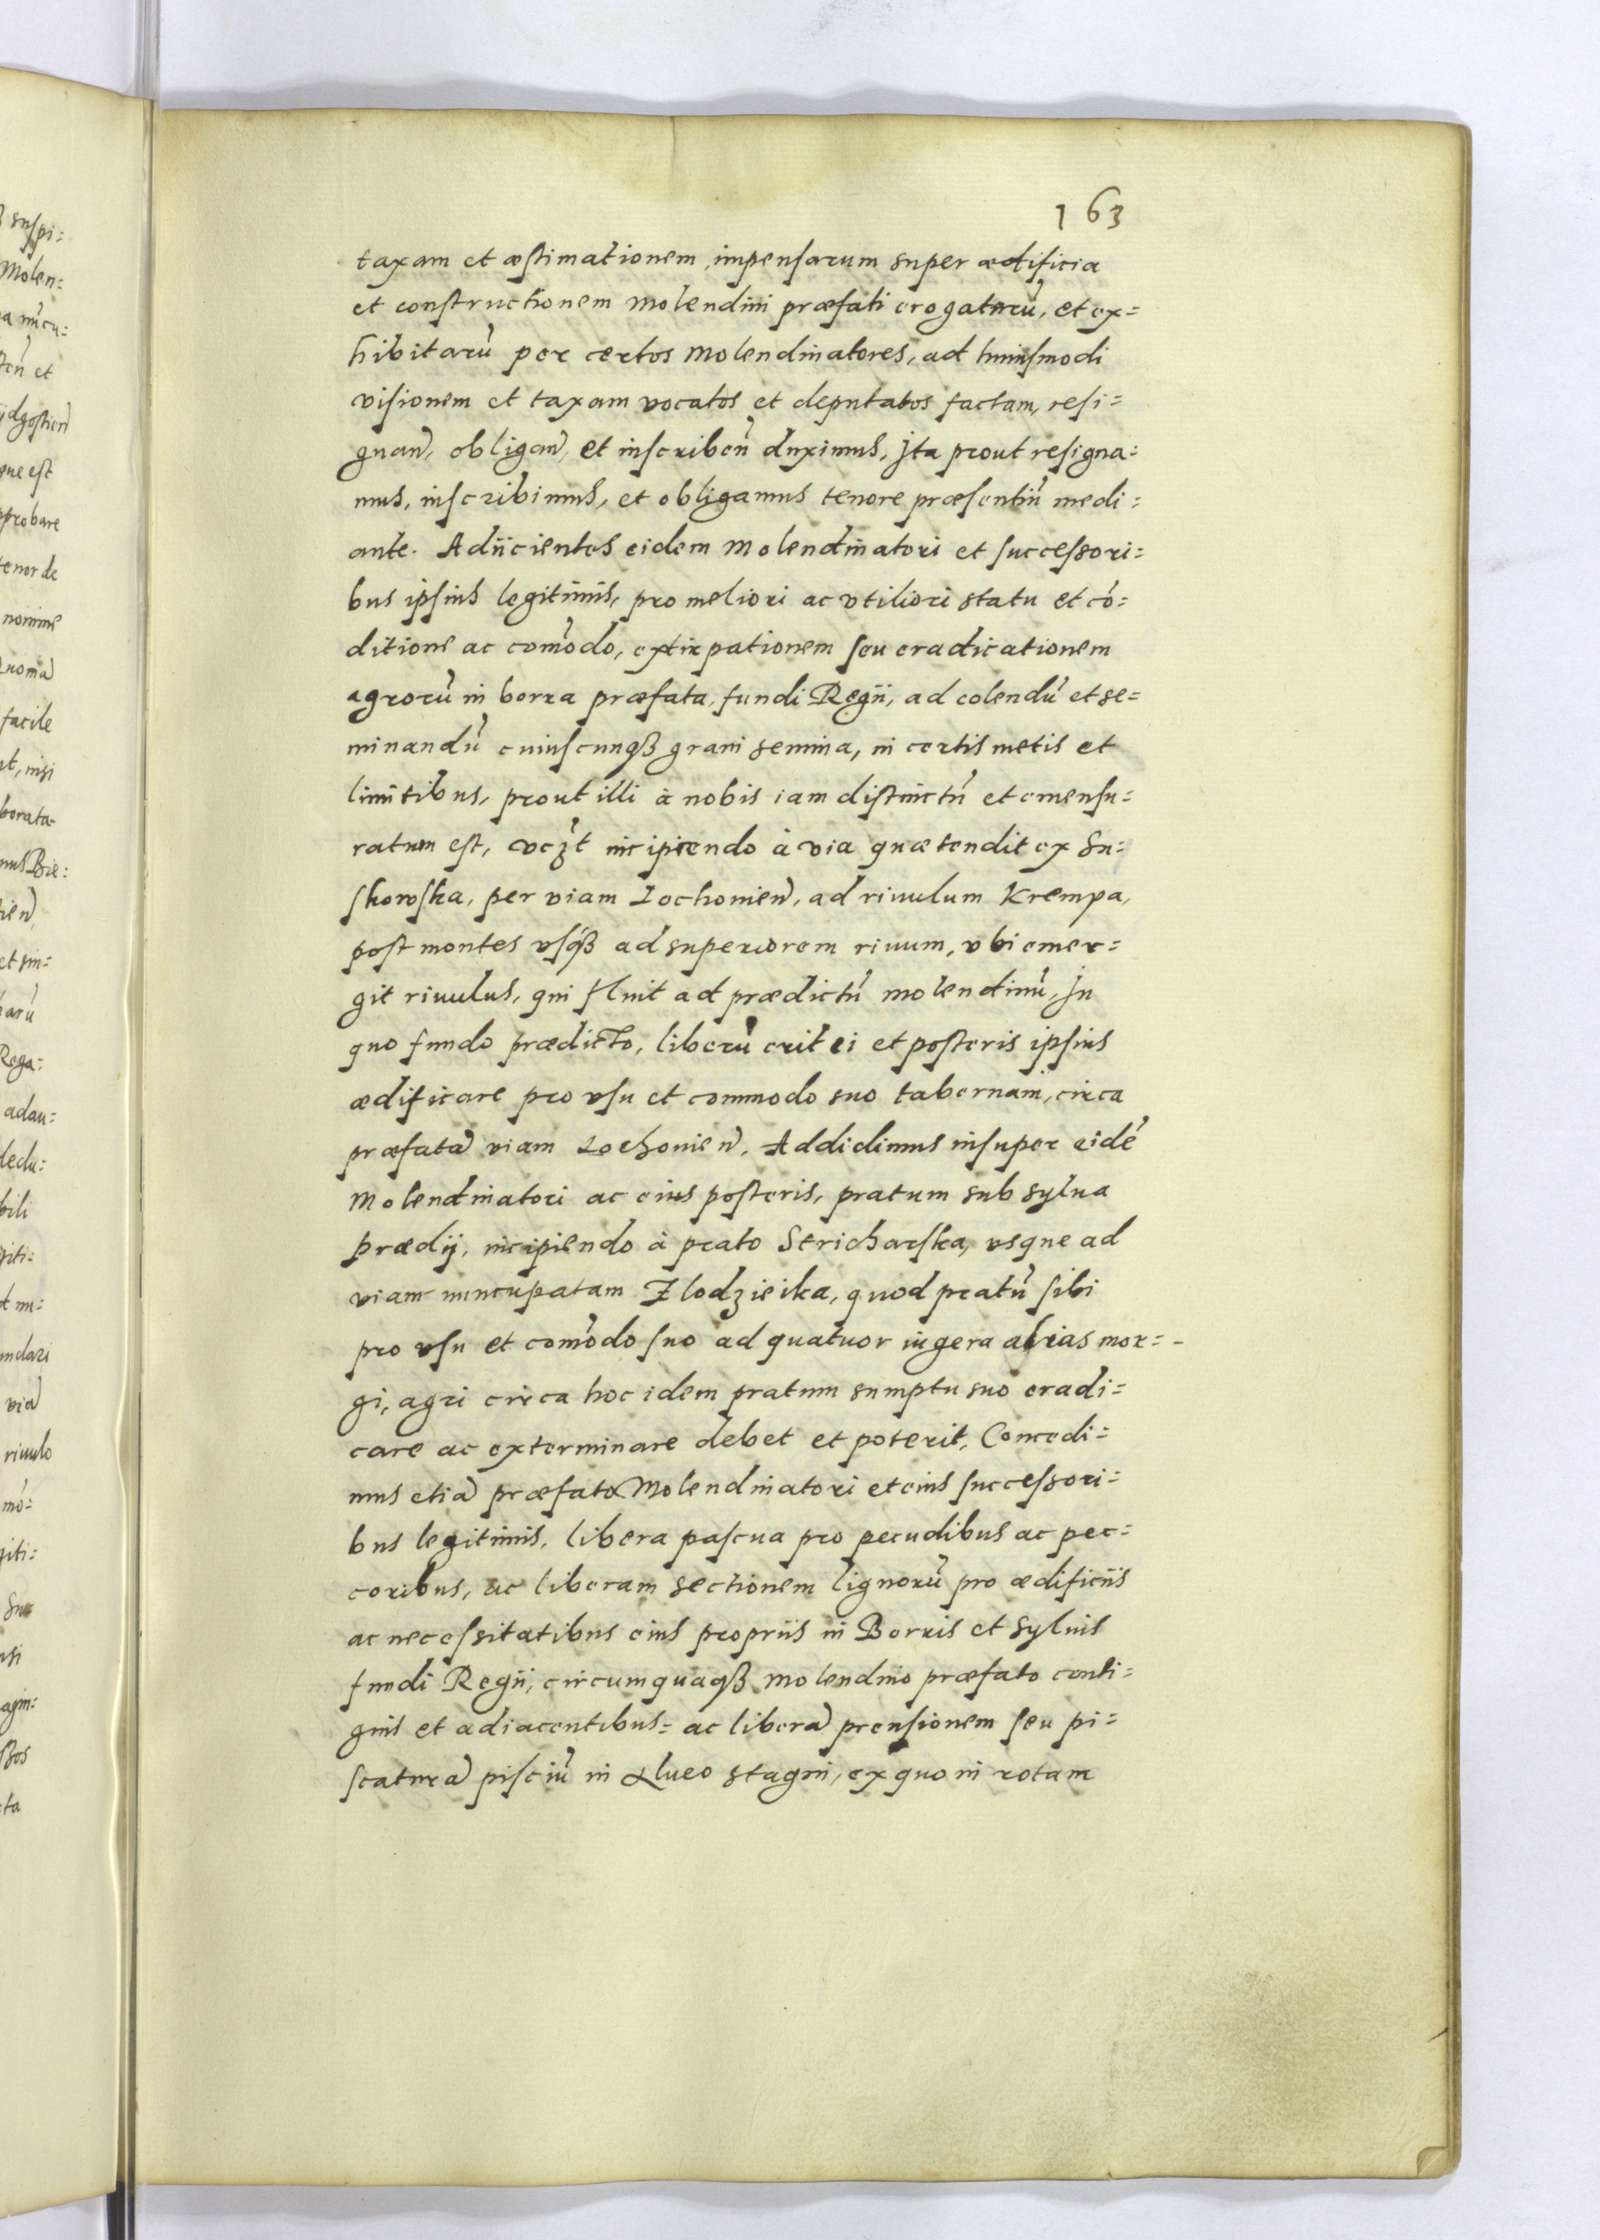 163
taxam et æstimationem impensarum super ædificia
et constructionem molendini præfati erogatarũ, et ex=
hibitarũ per certos molendinatores, ad huiusmodi
visionem et taxam vocatos et deputatos factam, resi=
gnan̄, obligan̄, et inscriben̄ duximus, Ita prout resigna=
mus, inscribimus, et obligamus tenore præsentiũ medi=
ante. Adiicientes eidem molendinatori et successori=
bus ipsius legitimis, pro meliori ac vtiliori statu et cõ=
ditione ac com̃odo, extirpationem seu eradicationem
agrorũ in borra præfata, fundi Regii, ad colendũ et se=
minandũ cuiuscunqꝫ grani semina, in certis metis et
limitibus, prout illi à nobis iam distinctũ et emensu=
ratum est, vcꝫt incipiendo à via quæ tendit ex Su=
skowska, per viam Lochonien̄, ad riuulum Krempa,
post montes vsqꝫ ad superiorem riuum, vbi emer=
git riuulus, qui fluit ad prædictũ molendinũ, In
quo fundo prædicto, liberũ erit ei et posteris ipsius
ædificare pro vsu et commodo suo tabernam, circa
præfatã viam Lochonien̄. Addidimus insuper eidẽ
Molendinatori ac eius posteris, pratum sub sylua
prædij, incipiendo à prato Stricharska, vsque ad
viam nuncupatam Zlodzieika, quod pratũ sibi
pro vsu et com̃odo suo ad quatuor iugera alias mor=
gi, agri circa hoc idem pratum sumptu suo eradi=
care ac exterminare debet et poterit, Concedi=
mus etiã præfato Molendinatori et eius successori=
bus legitimis, libera pascua pro pecudibus ac pec=
coribus, ac liberam sectionem lignorũ pro ædificiis
ac necessitatibus eius propriis in Borris et syluis
fundi Regii, circumquaqꝫ molendino præfato conti=
guis et adiacentibus= ac liberã prensionem seu pi=
scaturã pisciũ in alueo stagni, ex quo in rotam